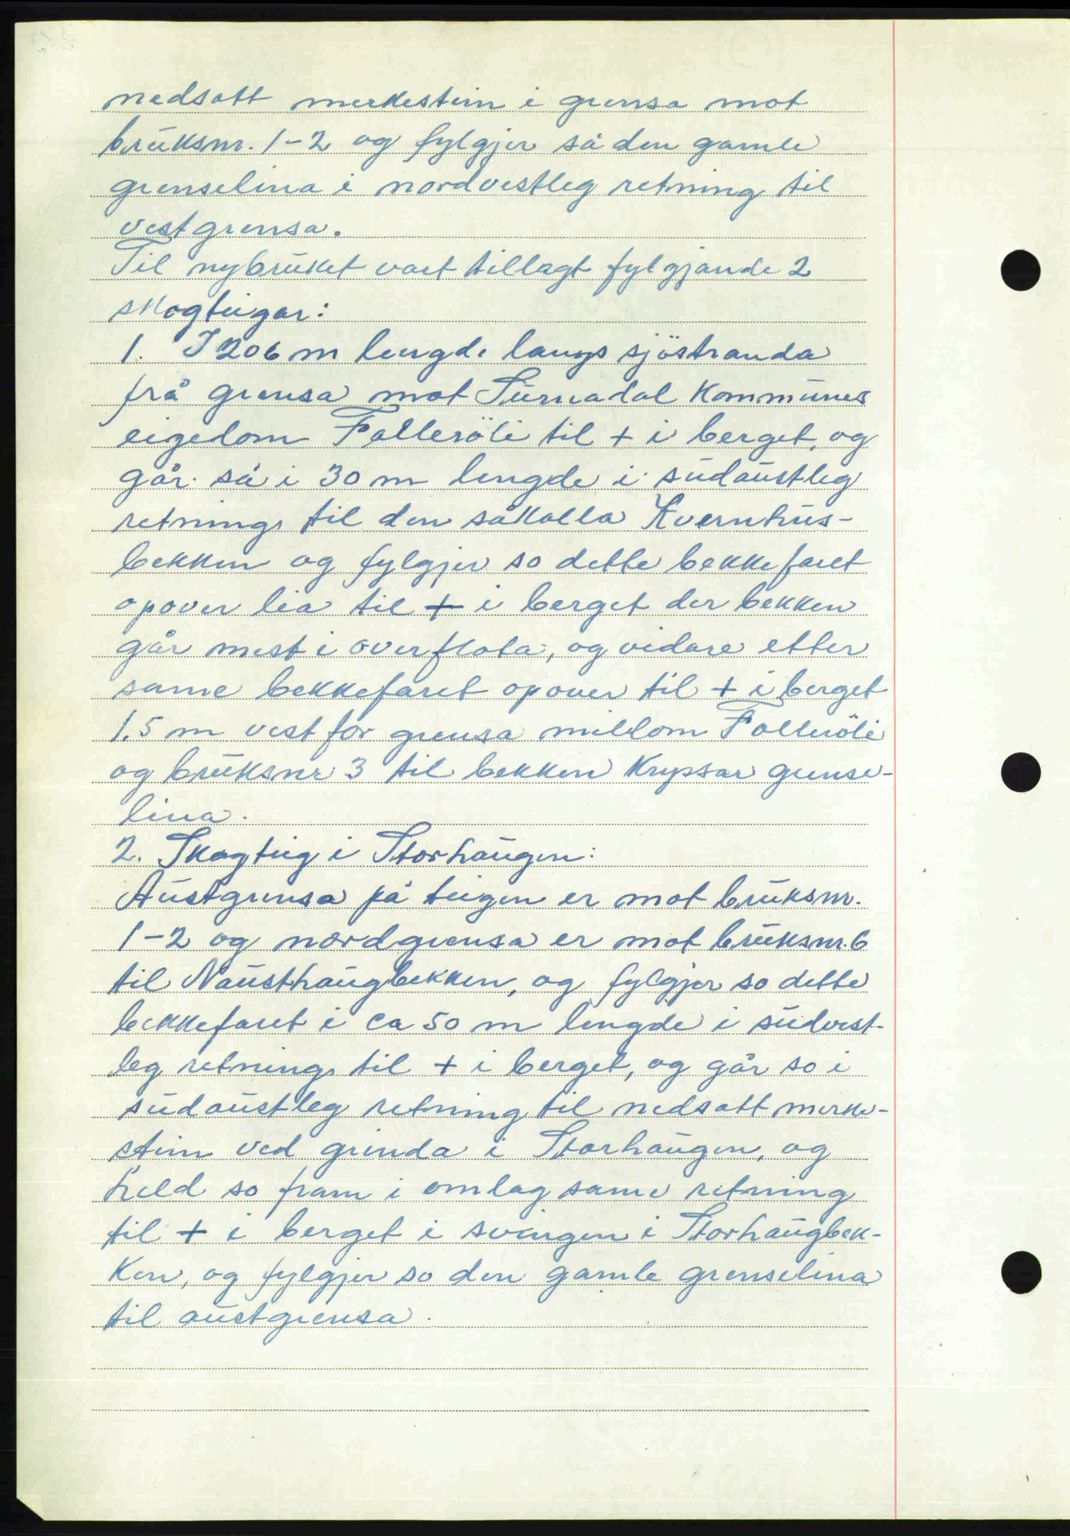 nedsatt merkestein i grensa mot
bruksnr. 1-2 og fylgjer så den gamle
grenselina i nordvestleg retning til
vestgrensa.
Til nybruket vart tillagt fylgjande 2
skogteigar:
1. I 206 m lengde langs sjöstranda
frå grensa mot Surnadal kommunes
eigedom Falleröli til + i berget, og
går så i 30 m lengde i südaustleg
retning til den såkalla Kvernhus-
bekken og fylgjer so dette bekkefaret
opover lia til + i berget der bekken
går mest i overflata, og vidare etter
same bekkefaret opover til + i berget
1.5 m vest for grensa millom Falleröli
og bruksnr 3 til bekken kryssar grense-
lina.
2. Skogteig i Storhaugen:
Austgrensa på teigen er mot bruksnr.
1-2 og nordgrensa er mot bruksnr. 6
til Nausthaugbekken, og fylgjer so dette
bekkefaret i ca 50 m lengde i südvest-
leg retning til + i berget, og går so i
südaustleg retning til nedsatt merke-
stein ved grinda i Storhaugen, og
held so fram i omlag same retning
til + i berget i svingen i Storhaugbek-
ken, og fylgjer so den gamle grenselina
til austgrensa.